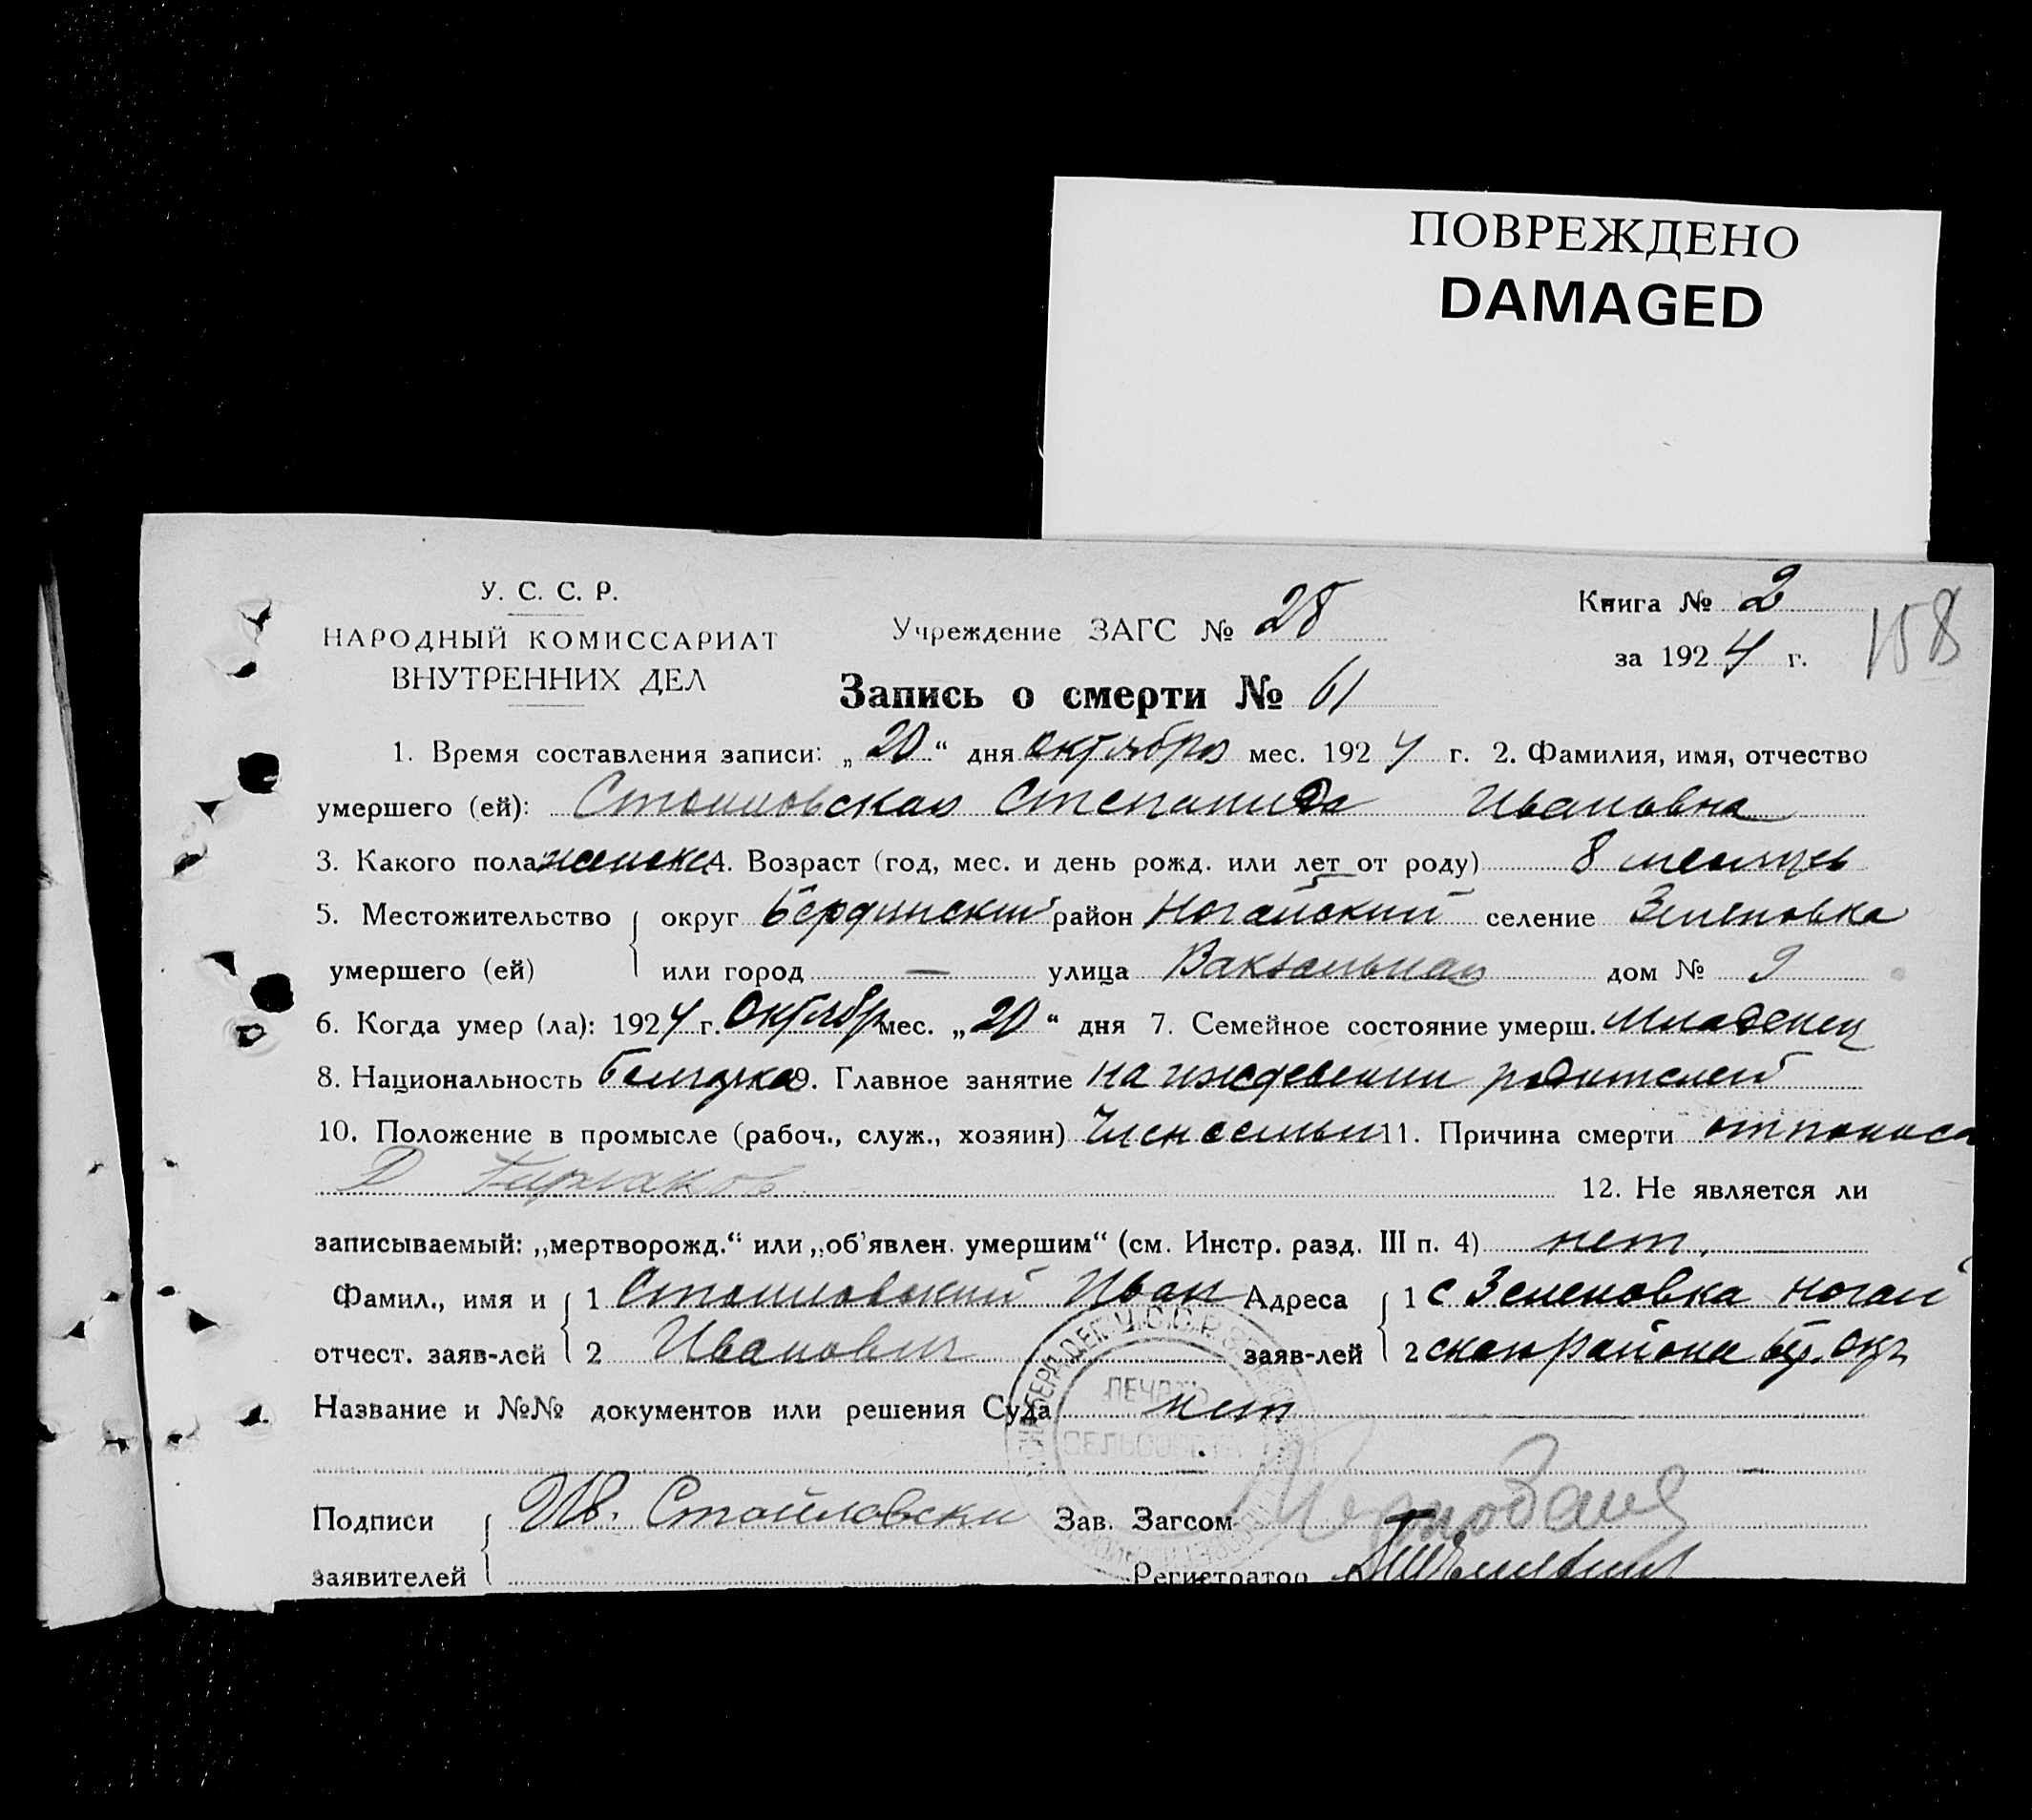 ПОВРЕЖДЕНО
DAMAGED
У. С. С. Р.
НАРОДНЫЙ КОМИССАРИАТ
ВНУТРЕННИХ ДЕЛ
Учреждение ЗАГС № 28
Книга № 2
за 1924 г.
158
Запись о смерти № 61
1. Время составления записи: „20“ дня октября мес. 1924 г. 2. Фамилия, имя, отчество
умершего (ей): Стоиловская Степанида Ивановна
3. Какого пола женска 4. Возраст (год, мес. и день рожд. или лет от роду) 8 месяцев
5. Местожительство округ Бердянский район Ногайский селение Зеленовка
умершего (ей) или город — улица Вакзальная дом № 9
6. Когда умер (ла): 1924 г. Октябр мес. „20“ дня 7. Семейное состояние умерш. младенец
8. Национальность болгарка 9. Главное занятие на иждевении родителей
10. Положение в промысле (рабоч., служ., хозяин) Член семьи 11. Причина смерти от поноса
12. Не является ли
записываемый: „мертворожд.“ или „об'явлен. умершим“ (см. Инстр. разд. III п. 4) нет.
Фамил., имя и 1 Стоиловский Иван Адреса 1 с Зеленовка Ногай
отчест. заяв-лей 2 Иванович заяв-лей 2 ского района Бер. окр
Название и №№ документов или решения Суда нет
ПЕЧАТЬ
СЕЛЬСОВЕТА
Подписи Ив. Стойловски Зав. Загсом
заявителей Регистратор